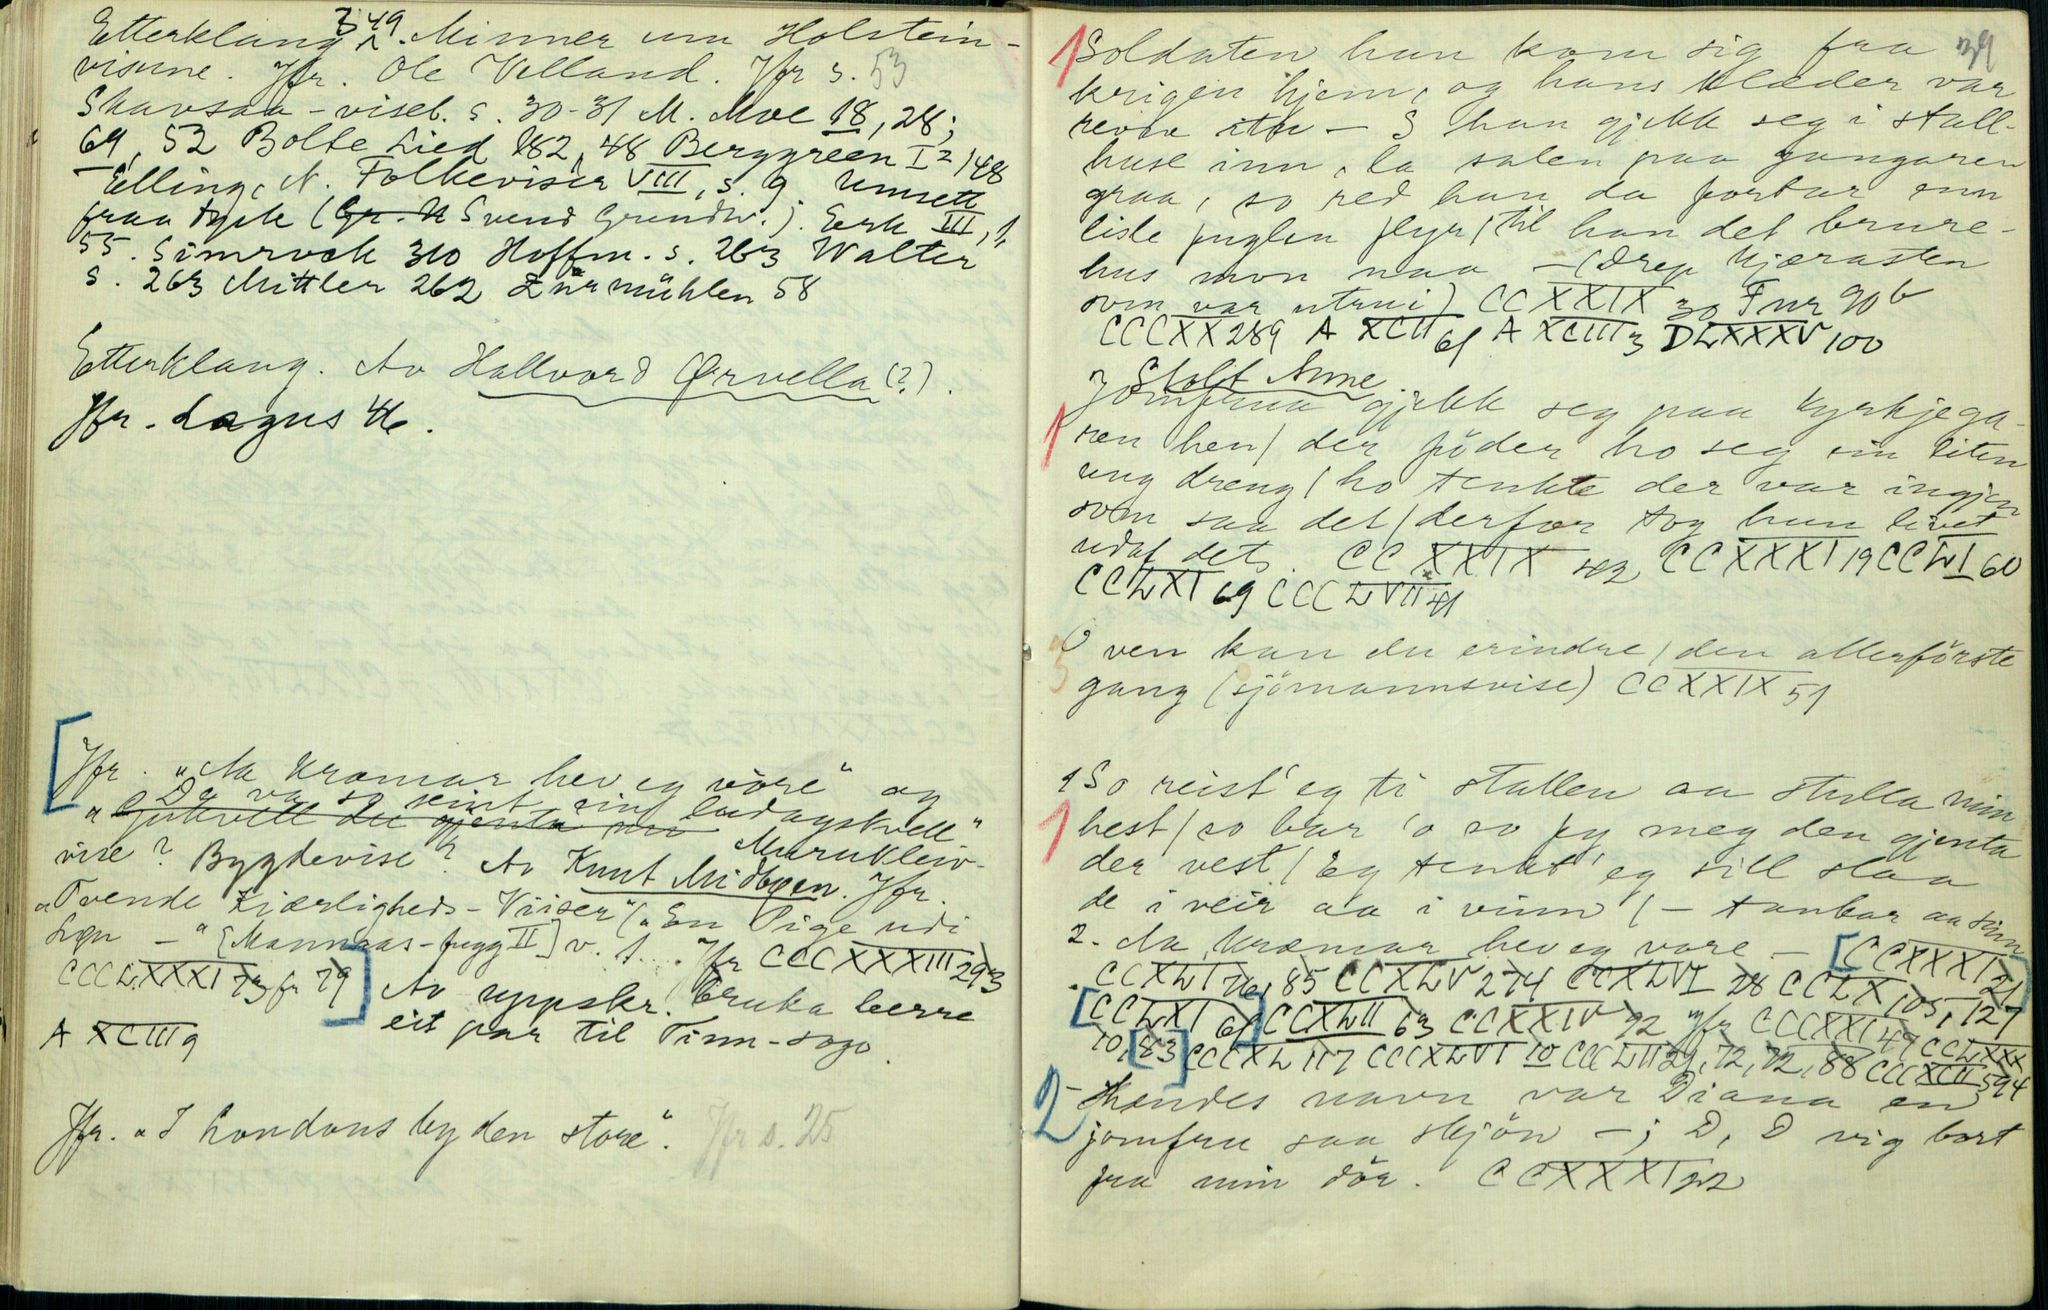 349
Etterklang. Minner um Holstein-
visune. Jfr. Ole Velland. Jfr s. 53
Skavsaa-viseb. s. 30-31 M. Moe 18, 28;
69, 52 Bolte Lied 182, 48 Berggreen I² 148
Elling, N. Folkeviser VIII, s. 9 Umsett
fraa tysk (Svend Grundtv.). Erk III, 1,
55. Simrock 310 Hoffm. s. 263 Walter
s. 263 Mittler 262 Zurmühlen 58
Etterklang. Av Hallvord Ørvella (?).
Jfr. Lagus 46.
[Jfr. "Aa kræmar hev eg vöre" og
"Da va so seint ein laudagskvell"
Murukleiv-
vise? Bygdevise? Av Knut Midbøen. Jfr.
"Tvende Kiærligheds-Viiser" ("En Pige udi
Løn –" [Mannaas-fugg II] v. 1... Jfr CCCXXXIII 293
CCCLXXXI 73 fr 79]
Av uppskr. bruka berre
eit par til Tinn-sogo.
A XCIII 9
Jfr. "I Londons by den store". Jfr s. 25
39
1 Soldaten han kom sig fra
krigen hjem, og hans klæder var
revne itu – S han gjekk seg i stall-
huse inn, la salen paa gangaren
graa, so red han da fortar enn
lisle fuglen flyr / til han det brure-
hus mon naa – (Drep kjærasten
som var utrui) CCXXIX 30 Fnr 90 b
CCCXX 289 A XCII 61 A XCIII 3 DLXXXV 100
Stolt Anne
1 Jomfrua gjekk seg paa kyrkjega-
ren hen / der föder ho seg ein liten
ung dreng / ho tenkte der var ingjen
som saa det / derfor tog hun livet
udaf det. CCXXIX 42 CCXXXI 19 CCLI 60
CCLXI 69 CCCLVII 41
3 O ven kan du erindre / den allerförste
gang (sjömannsvise) CCXXIX 51
1 So reist' eg ti stallen aa stella min
1 hest / so bar 'o so fy meg den gjenta
der vest / Eg tenkt' eg sill slaa
de i veir aa i vinn / – tankar aa sinn
2. Aa kræmar hev eg vore – [CCXXXI 21]
CCXLI 76, 85 CCXLV 274 CCXLVI 28 CCLX 105, 127
[CCLXI 61] CCXLII 63 CCXXIV 92 Jfr CCCXXI 47 CCLXXX
10, [83] CCCXL 117 CCCXLVI 10 CCCLII 29, 72, 72, 88 CCCXCII 594
2 Hendes navn var Diana en
jomfru saa skjön –; D, D vig bort
fra min dör. CCXXXI 22